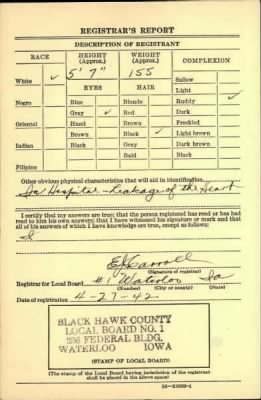 REGISTRAR'S REPORT
DESCRIPTION OF REGISTRANT
RACE HEIGHT (Approx.) WEIGHT (Approx.) COMPLEXION
5' 7" 155
White ✓ EYES HAIR Sallow
Light
Negro Blue Blonde Ruddy ✓
Gray ✓ Red Dark
Oriental Hazel Brown Freckled
Brown Black ✓ Light brown
Indian Black Gray Dark brown
Bald Black
Filipino
Other obvious physical characteristics that will aid in identification
In Hospital - Leakage of the Heart
I certify that my answers are true; that the person registered has read or has had
read to him his own answers; that I have witnessed his signature or mark and that
all of his answers of which I have knowledge are true, except as follows:
E Carroll
(Signature of registrar)
Registrar for Local Board #1 Waterloo Ia
(Number) (City or county) (State)
Date of registration 4-27-42
BLACK HAWK COUNTY
LOCAL BOARD NO. 1
236 FEDERAL BLDG,
WATERLOO IOWA
(STAMP OF LOCAL BOARD)
(The stamp of the Local Board having jurisdiction of the registrant
shall be placed in the above space)